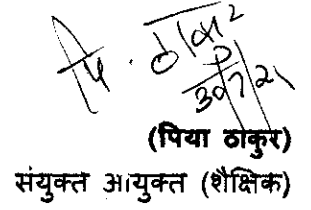 पि. ठाकुर
30/7/21
(पिया ठाकुर)
संयुक्त आयुक्त (शैक्षिक)